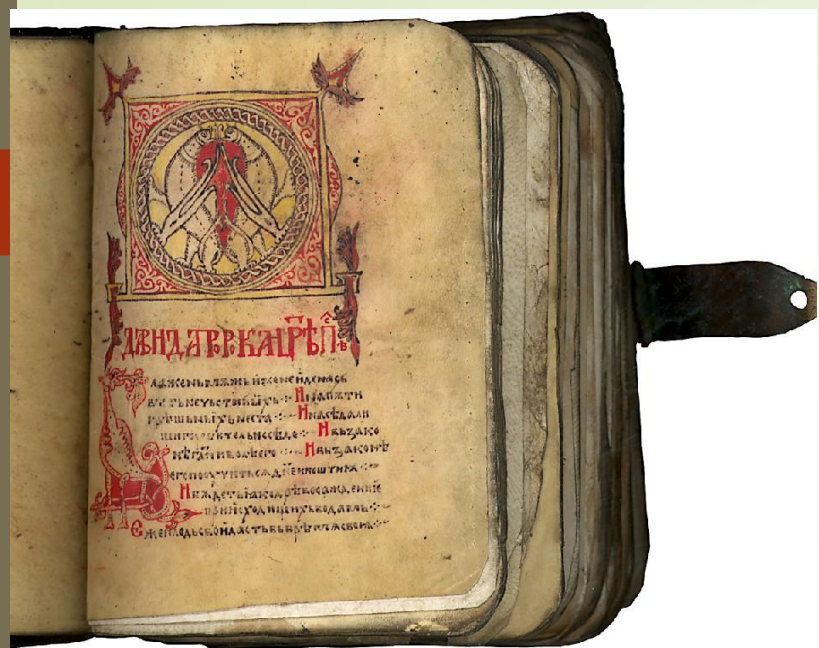 ДАВИДА ПРРКА ЦРѢ П
Блаженъ мѫжь иже не иде на съ
вѣтъ нечьстивыихъ ·:· И на пѫти
грѣшьныихъ не ста ·:· И на сѣдали
щи гоубитель не сѣде ·:· Н въ зако
нѣ гн҃и волѣ его ·:· И въ законѣ
его поучитъ сѧ дн҃е и ноштиѫ ·:·
И бѫдетъ ꙗко дрѣво сажденіе
при исходищихъ водамъ ·:·
Еже плодъ свои дастъ въ врѣмѧ свое ·:·